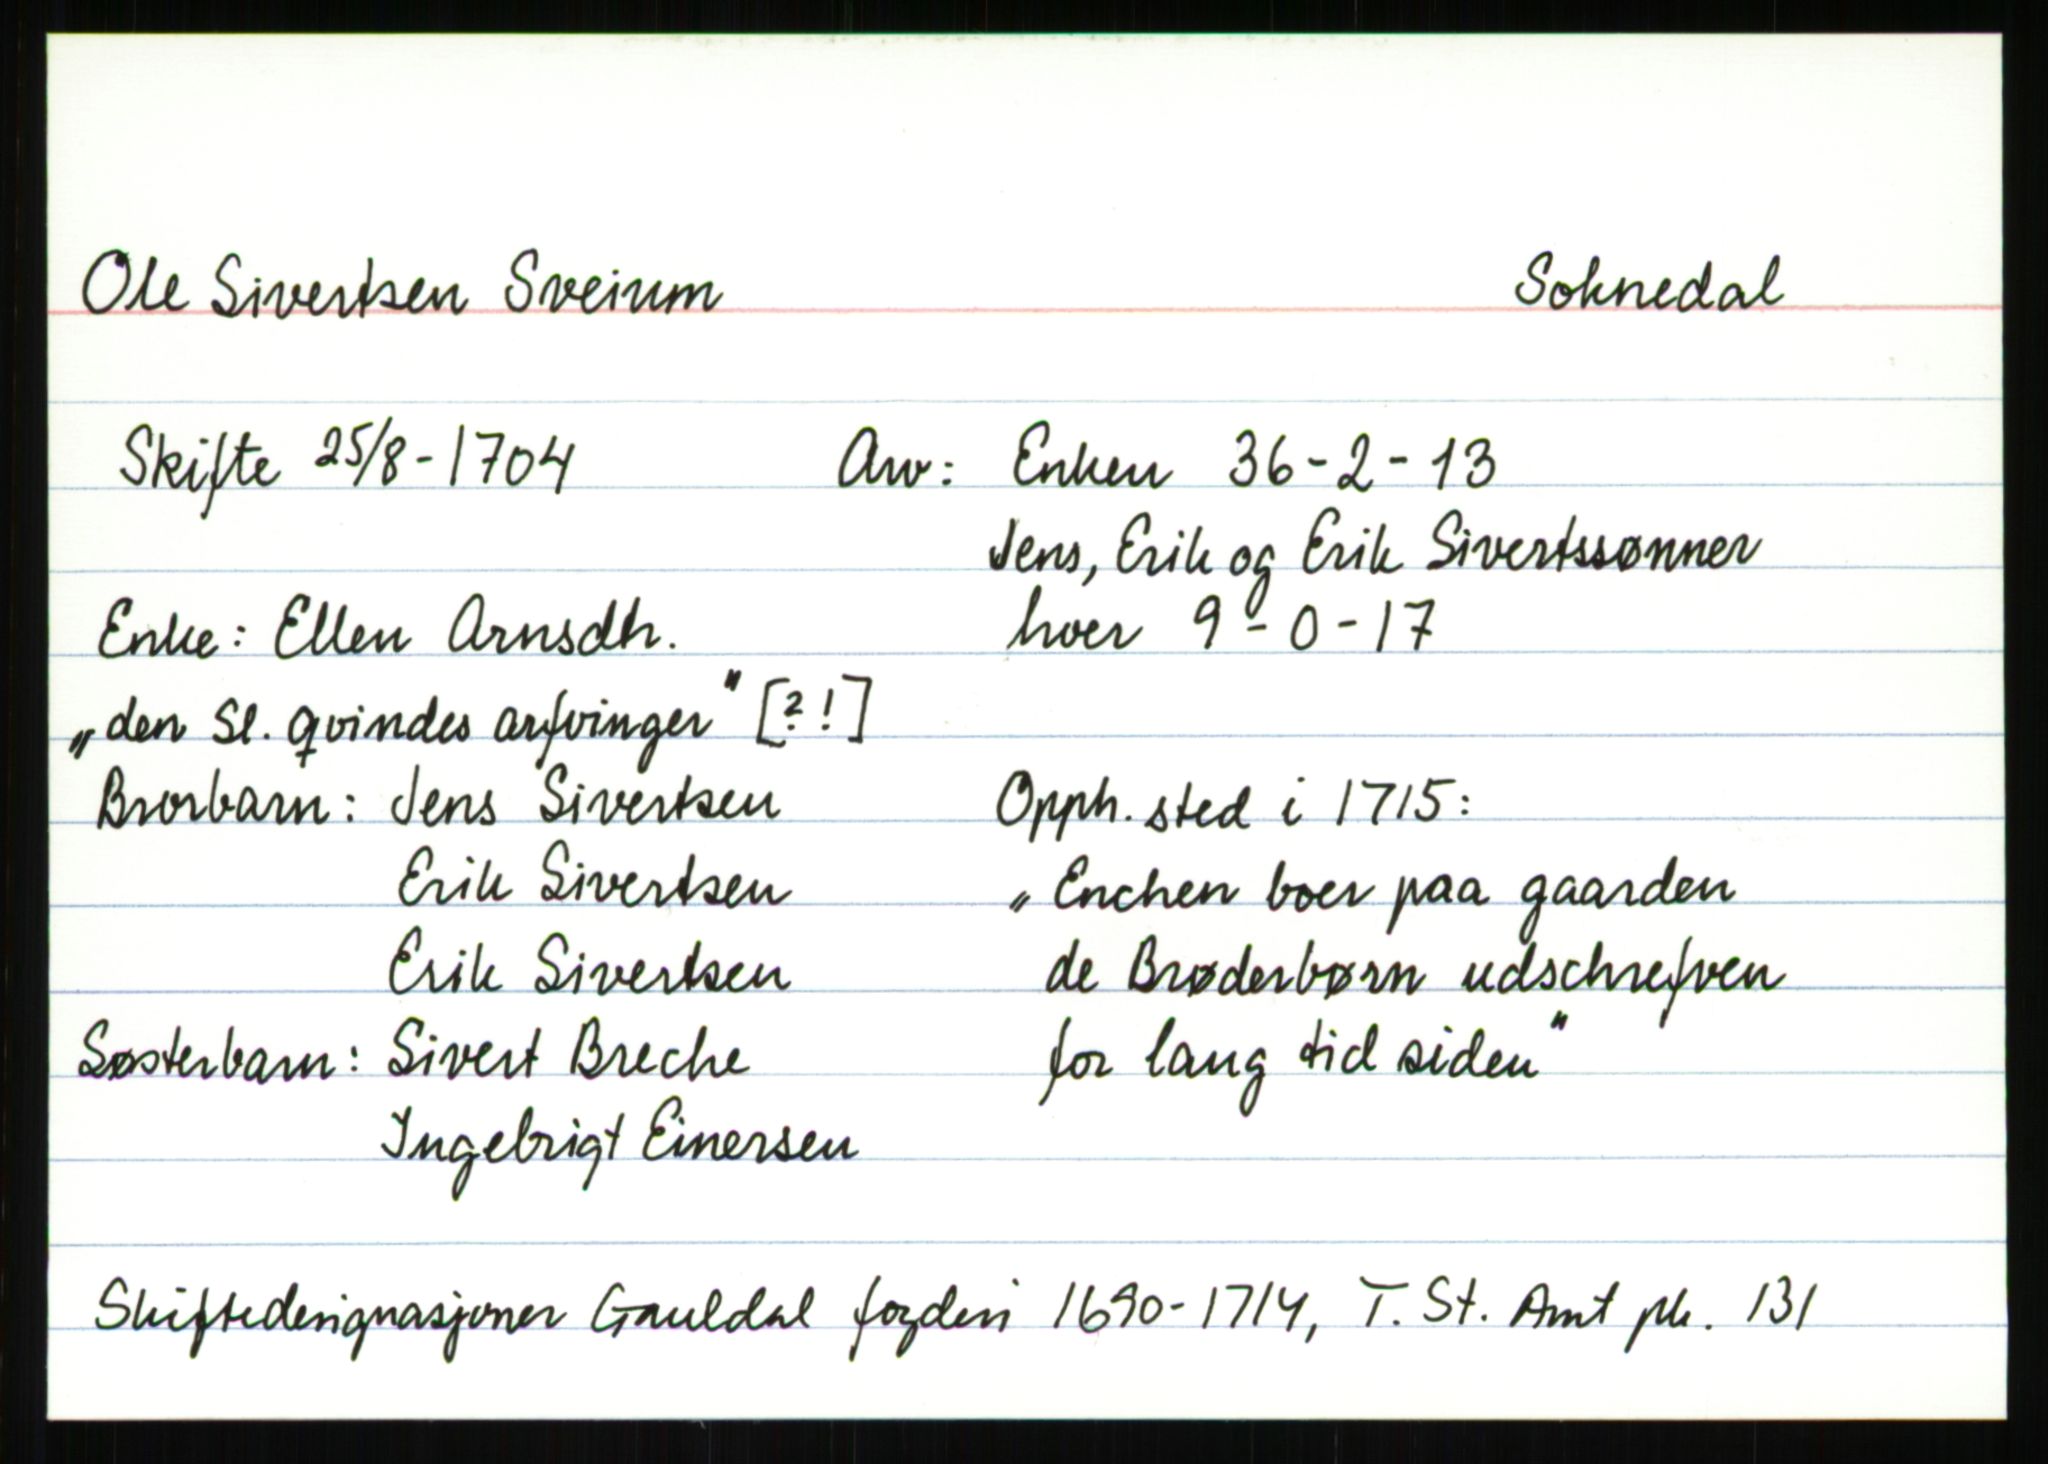 Ole Sivertsen Sveium Soknedal
Skifte 25/8-1704 Arv: Enken 36-2-13
Jens, Erik og Erik Sivertssønner
Enke: Ellen Arnsdh. hver 9-0-17
„den Sl. qvindes arfvinger" [?!]
Brorbarn: Jens Sivertsen Opph. sted i 1715:
Erik Sivertsen „Enchen boer paa gaarden
Erik Sivertsen de Brøderbørn udschrefven
Søsterbarn: Sivert Breche for lang tid siden"
Ingebrigt Einersen
Skiftedesignasjoner Gauldal fogderi 1690-1714, T. St. Amt pk. 131